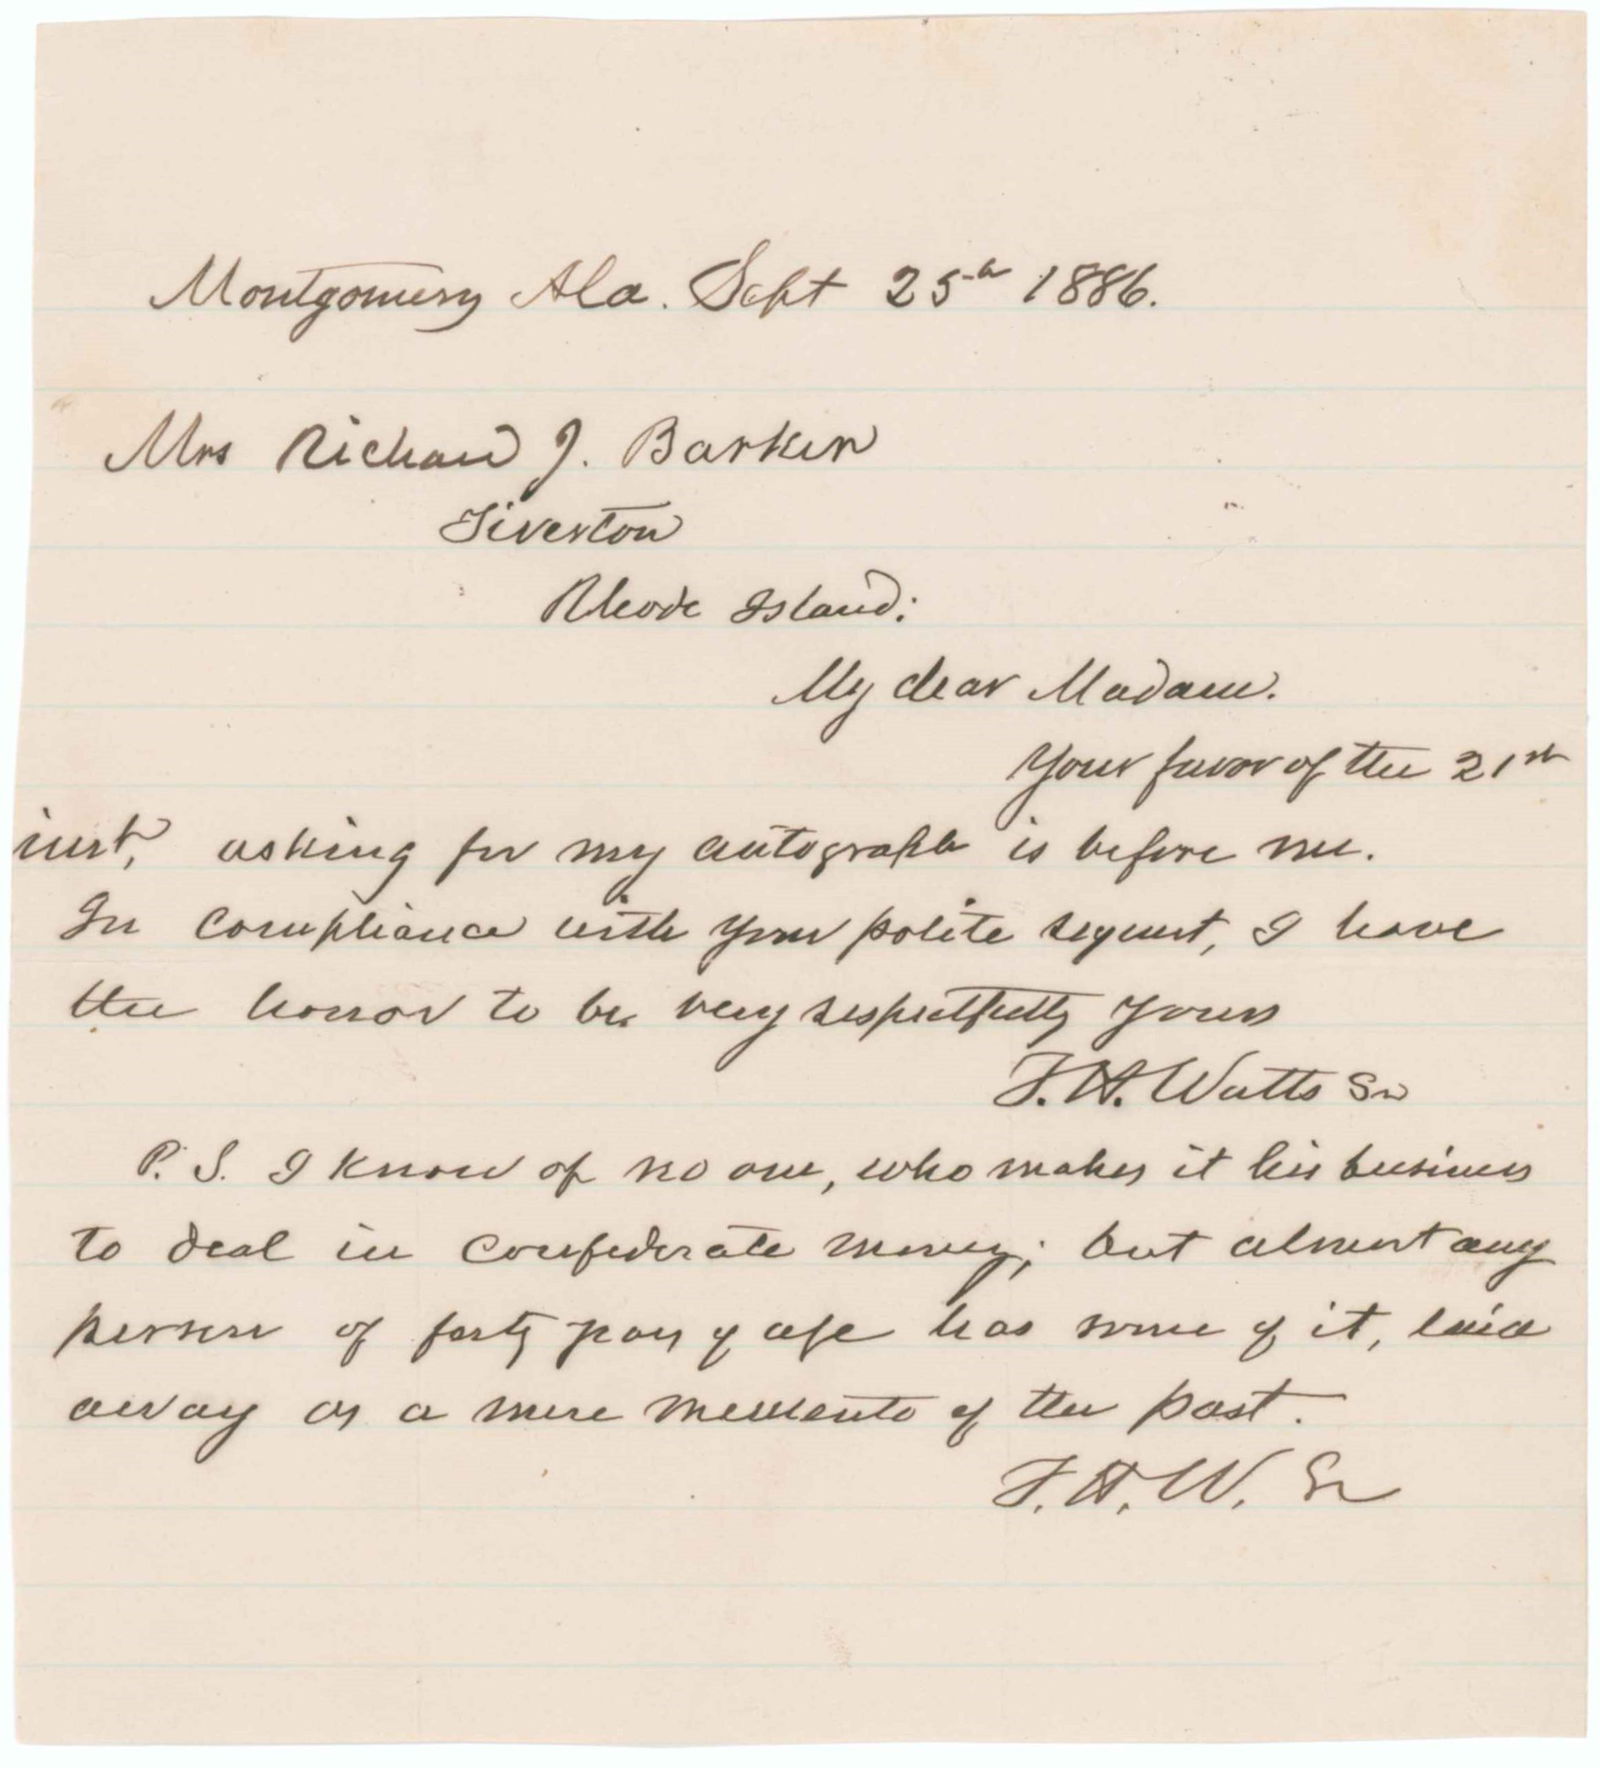 Montgomery Ala. Sept 25th 1886.
Mrs Richard J. Barker
Tiverton
Rhode Island:
My dear Madam.
Your favor of the 21st
inst, asking for my autograph is before me.
In compliance with your polite request, I have
the honor to be very respectfully yours
T. H. Watts Sr
P. S. I know of no one, who makes it his business
to deal in confederate money; but almost any
person of forty years of age has some of it, laid
away as a mere memento of the past.
T. H. W. Sr